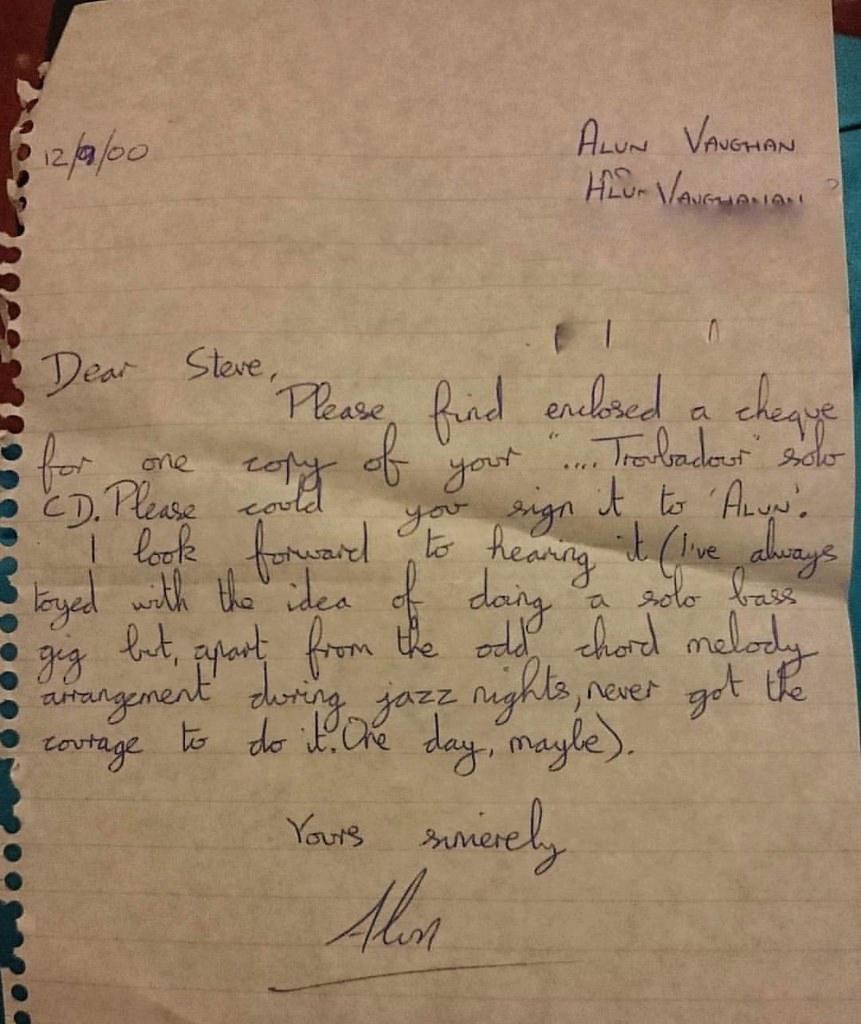 12/9/00
ALUN VAUGHAN
ALUN VAUGHANAN
Dear Steve,
Please find enclosed a cheque
for one copy of your "....Troubadour" solo
CD. Please could you sign it to 'ALUN'.
I look forward to hearing it (I've always
toyed with the idea of doing a solo bass
gig but, apart from the odd chord melody
arrangement during jazz nights, never got the
courage to do it. One day, maybe).
Yours sincerely
Alun